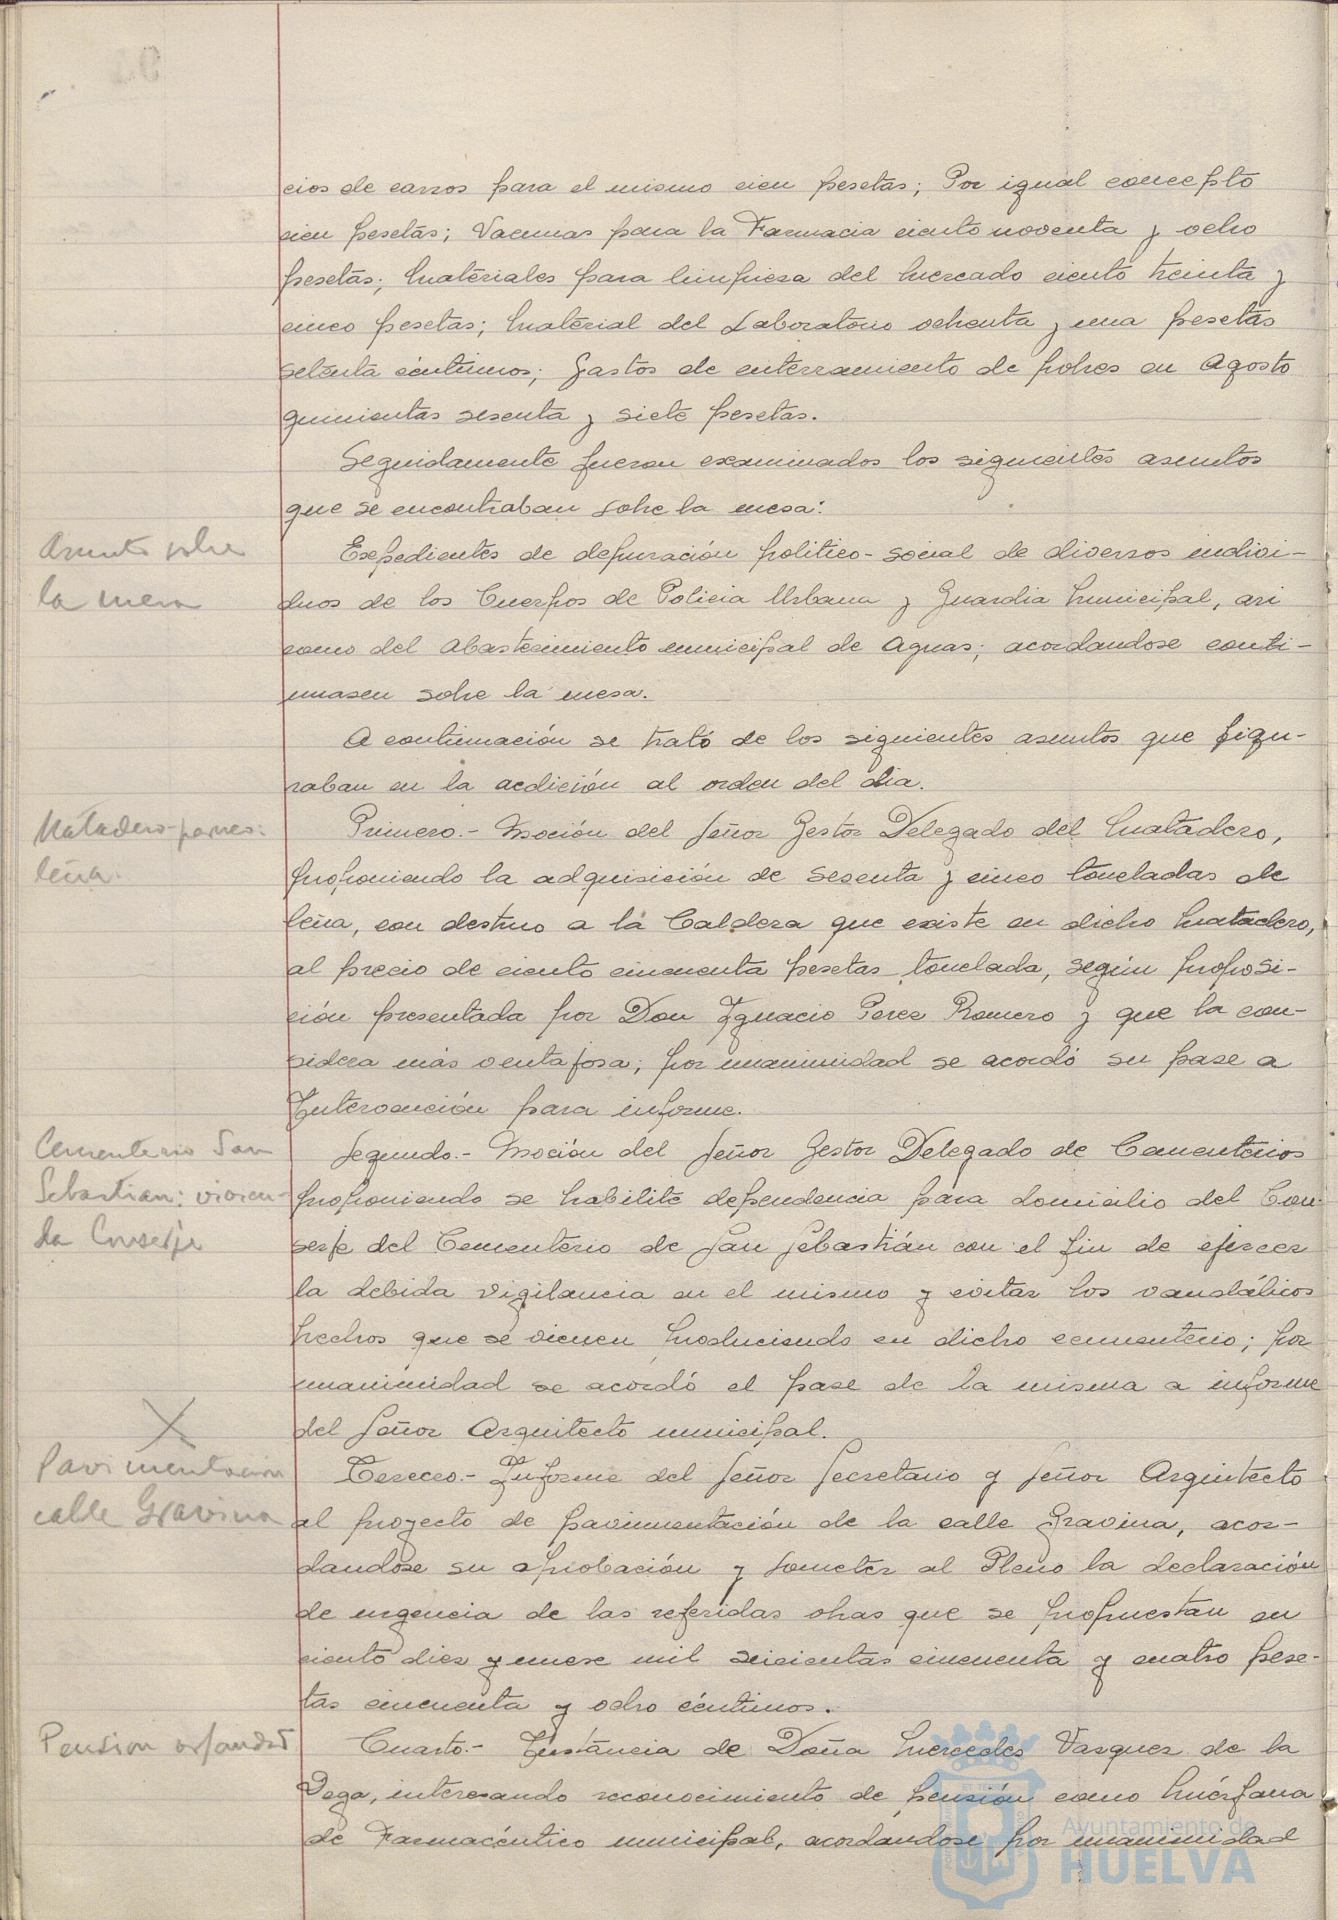 cios de carros para el mismo cien pesetas; Por igual concepto
cien pesetas; Vacunas para la Farmacia ciento noventa y ocho
pesetas; Materiales para limpieza del Mercado ciento treinta y
cinco pesetas; Material del Laboratorio ochenta y una pesetas
setenta céntimos; Gastos de enterramiento de pobres en Agosto
quinientas sesenta y siete pesetas.
Seguidamente fueron examinados los siguientes asuntos
que se encontraban sobre la mesa:
Asunto sobre
la mesa
Expedientes de depuración politico-social de diversos indivi-
duos de los Cuerpos de Policia Urbana y Guardia Municipal, asi
como del Abastecimiento municipal de Aguas; acordandose conti-
nuasen sobre la mesa.
A continuación se trató de los siguientes asuntos que figu-
raban en la acdición al orden del dia.
Matadero-parres:
leña.
Primero.- Moción del Señor Gestor Delegado del Matadero,
proponiendo la adquisición de sesenta y cinco toneladas de
leña, con destino a la Caldera que existe en dicho Matadero,
al precio de ciento cincuenta pesetas tonelada, según proposi-
ción presentada por Don Ignacio Perez Romero y que la con-
sidera más ventajosa; por unanimidad se acordó su pase a
Intervención para informe.
Cementerio San
Sebastian: vivien-
da Conserje
Segundo.- Moción del Señor Gestor Delegado de Cementerios
proponiendo se habilite dependencia para domicilio del Con-
serje del Cementerio de San Sebastián con el fin de ejercer
la debida vigilancia en el mismo y evitar los vandálicos
hechos que se vienen produciendo en dicho cementerio; por
unanimidad se acordó el pase de la misma a informe
del Señor Arquitecto municipal.
X
Pavimentacion
calle Gravina
Tercero.- Informe del Señor Secretario y Señor Arqintecto
al proyecto de pavimentación de la calle Gravina, acor-
dandose su aprobación y someter al Pleno la declaración
de urgencia de las referidas obras que se propuestan en
ciento diez y nueve mil seicientas cincuenta y cuatro pese-
tas cincuenta y ocho céntimos.
Pension orfandad
Cuarto.- Instáncia de Doña Mercedes Vazquez de la
Vega, interesando reconocimiento de pensión como huérfana
de Farmacéutico municipal, acordandose por unanimidad
Ayuntamiento de
HUELVA